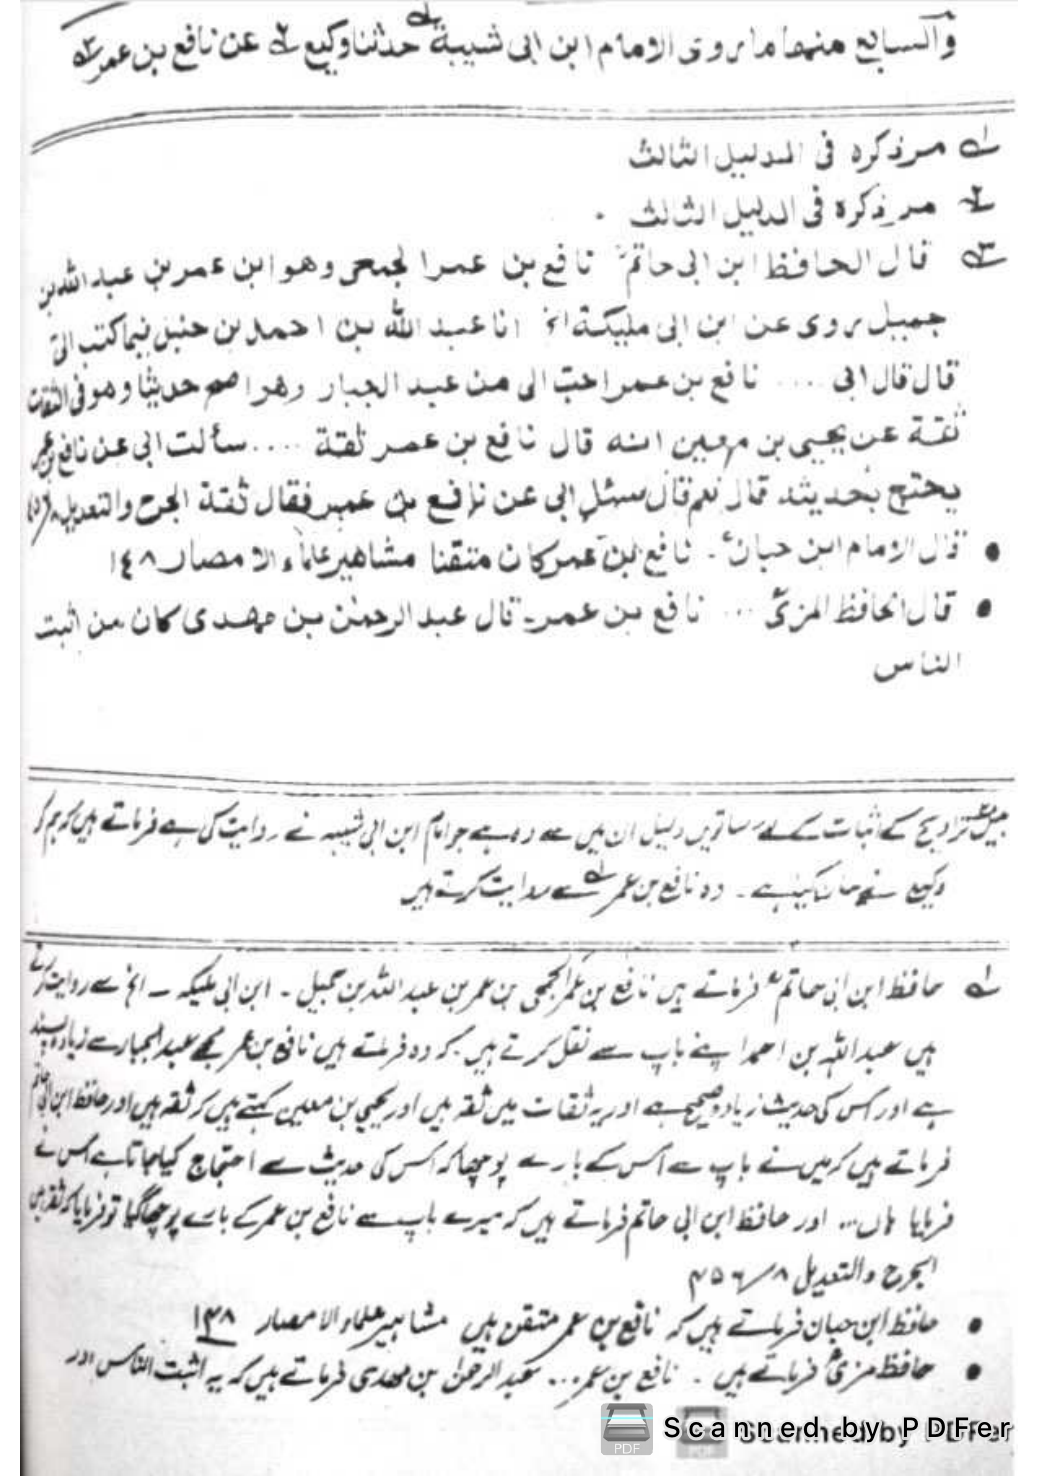 والسابع منها ما روى الامام ابن ابى شيبة ؎۱ حدثنا وكيع ؎۲ عن نافع بن عمر ؎۳
؎۱ مر ذكره فى الدليل الثالث
؎۲ مر ذكره فى الدليل الثالث .
؎۳ قال الحافظ ابن ابى حاتمؒ نافع بن عمر الجمعى وهو ابن عمر بن عبد الله بن
جميل روى عن ابن ابى مليكة الخ انا عبد الله بن احمد بن حنبل فيما كتب الىّ
قال قال ابى .... نافع بن عمر احب الى من عبد الجبار وهو اصح حديثا وهو فى الثقات
ثقة عن يحيى بن معين انه قال نافع بن عمر ثقة .... سألت ابى عن نافع بن عمر
يحتج بحديثه قال نعم قال سئل ابى عن نافع بن عمر فقال ثقة الجرح والتعديل
• قال الامام ابن حبانؒ . نافع بن عمر كان متقنا مشاهير علماء الامصار ١٤٨
• قال الحافظ المزىؒ ... نافع بن عمر۔ قال عبد الرحمٰن بن مهدى كان من اثبت
الناس
بیس تراویح کے اثبات کے لئے ساتویں دلیل ان میں سے وہ ہے جو امام ابن ابی شیبہ نے روایت کی ہے فرماتے ہیں کہ ہم کو
وکیع نے بیان کیا ہے۔ وہ نافع بن عمر ؎۱ سے روایت کرتے ہیں
؎۱ حافظ ابن ابی حاتمؒ فرماتے ہیں نافع بن عمر الجمحی بن عمر بن عبد اللہ بن جمیل۔ ابن ابی ملیکہ ۔ الخ سے روایت کرتے
ہیں عبد اللہ بن احمد اپنے باپ سے نقل کرتے ہیں۔ کہ وہ فرماتے ہیں نافع بن عمر مجھے عبد الجبار سے زیادہ پسند
ہے اور اس کی حدیث زیادہ صحیح ہے اور یہ ثقات میں ثقہ ہیں اور یحییٰ بن معین کہتے ہیں کہ ثقہ ہیں اور حافظ ابن ابی حاتم
فرماتے ہیں کہ میں نے باپ سے اس کے بارے پوچھا کہ اس کی حدیث سے احتجاج کیا جاتا ہے اس نے
فرمایا ہاں... اور حافظ ابن ابی حاتم فرماتے ہیں کہ میرے باپ سے نافع بن عمر کے بارے پوچھا گیا تو فرمایا کہ ثقہ ہیں
الجرح والتعدیل ۸/۴۵۶
• حافظ ابن حبان فرماتے ہیں کہ نافع بن عمر متقن ہیں مشاہیر علماء الامصار ۱۴۸
• حافظ مزیؒ فرماتے ہیں ۔ نافع بن عمر... عبد الرحمٰن بن مہدی فرماتے ہیں کہ یہ اثبت الناس اور
Scanned by PDFer
Scanned by PDFer
PDF
PDF